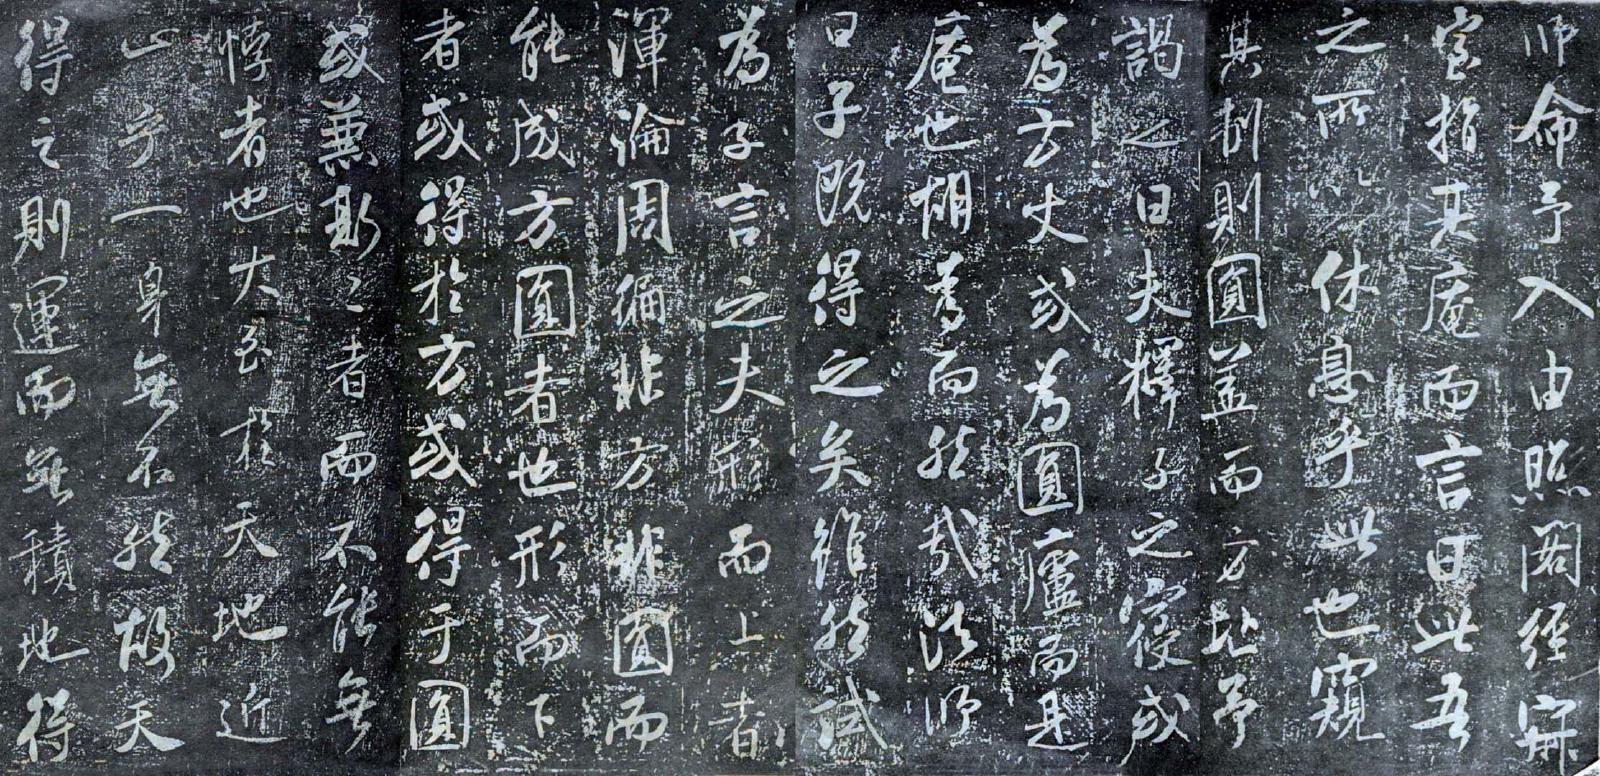 師命予入由照閣經寂
室指其庵而言曰此吾
之所以休息乎此也窺
其制則圓蓋而方址予
謁之曰夫釋子之寢或
為方丈或為圓廬而是
庵也胡為而然哉法師
曰子既得之矣雖然試
為子言之夫形而上者
渾淪周徧非方非圓而
能成方圓者也形而下
者或得於方或得于圓
或兼斯二者而不能無
悖者也大至於天地近
止乎一身無不然故天
得之則運而無積地得